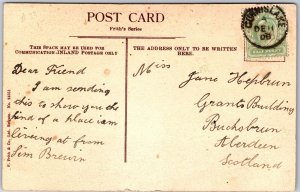 POST CARD
Frith's Series
THIS SPACE MAY BE USED FOR
COMMUNICATION INLAND POSTAGE ONLY
THE ADDRESS ONLY TO BE WRITTEN HERE
Dear Friend
I am sending
this to show you the
kind of a place I am
livering at from
Jim Breurn
Miss
Jane Hepburn
Grants Building
Buchsburn
Aberdeen
Scotland